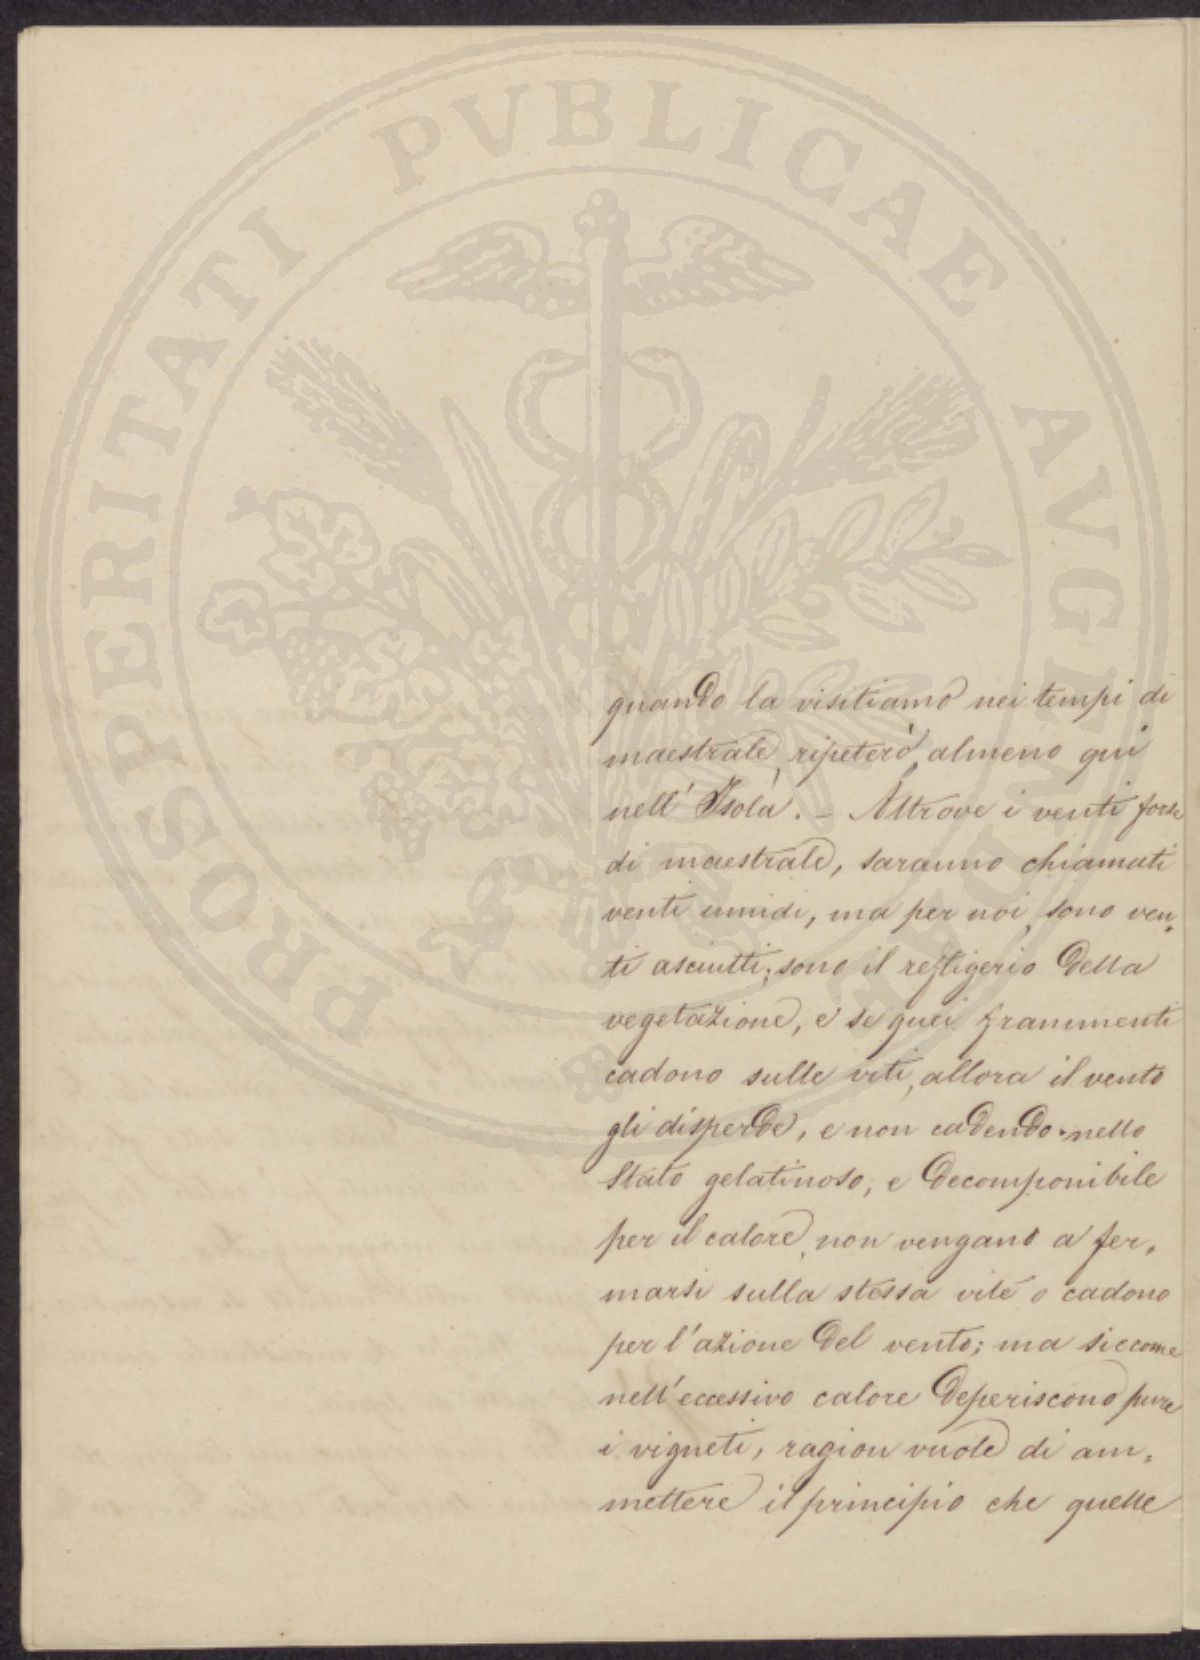 PROSPERITATI PVBLICAE AVGENDAE
quando la visitiamo nei tempi di
maestrale, ripeterò, almeno qui
nell' Isola. - Altrove i venti forse
di maestrale, saranno chiamati
venti umidi, ma per noi, sono ven-
ti asciutti; sono il refrigerio della
vegetazione, e se quei frammenti
cadono sulle viti, allora il vento
gli disperde, e non cadendo nello
stato gelatinoso, e decomponibile
per il calore, non vengano a fer-
marsi sulla stessa vite o cadono
per l'azione del vento; ma siccome
nell'eccessivo calore deperiscono pure
i vigneti, ragion vuole di am-
mettere il principio che quelle